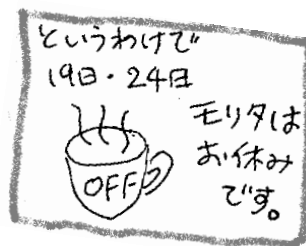 というわけで
19日・24日
モリタは
お休み
です。
OFF